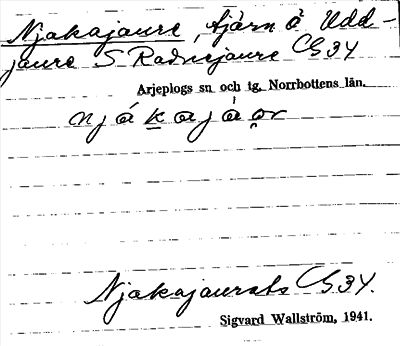 Njakajaure, tjärn å Udd-
jaure S Radnejaure CG34
Arjeplogs sn och tg, Norrbottens län.
njákajáor
Njakajaurats CG34.
Sigvard Wallström, 1941.